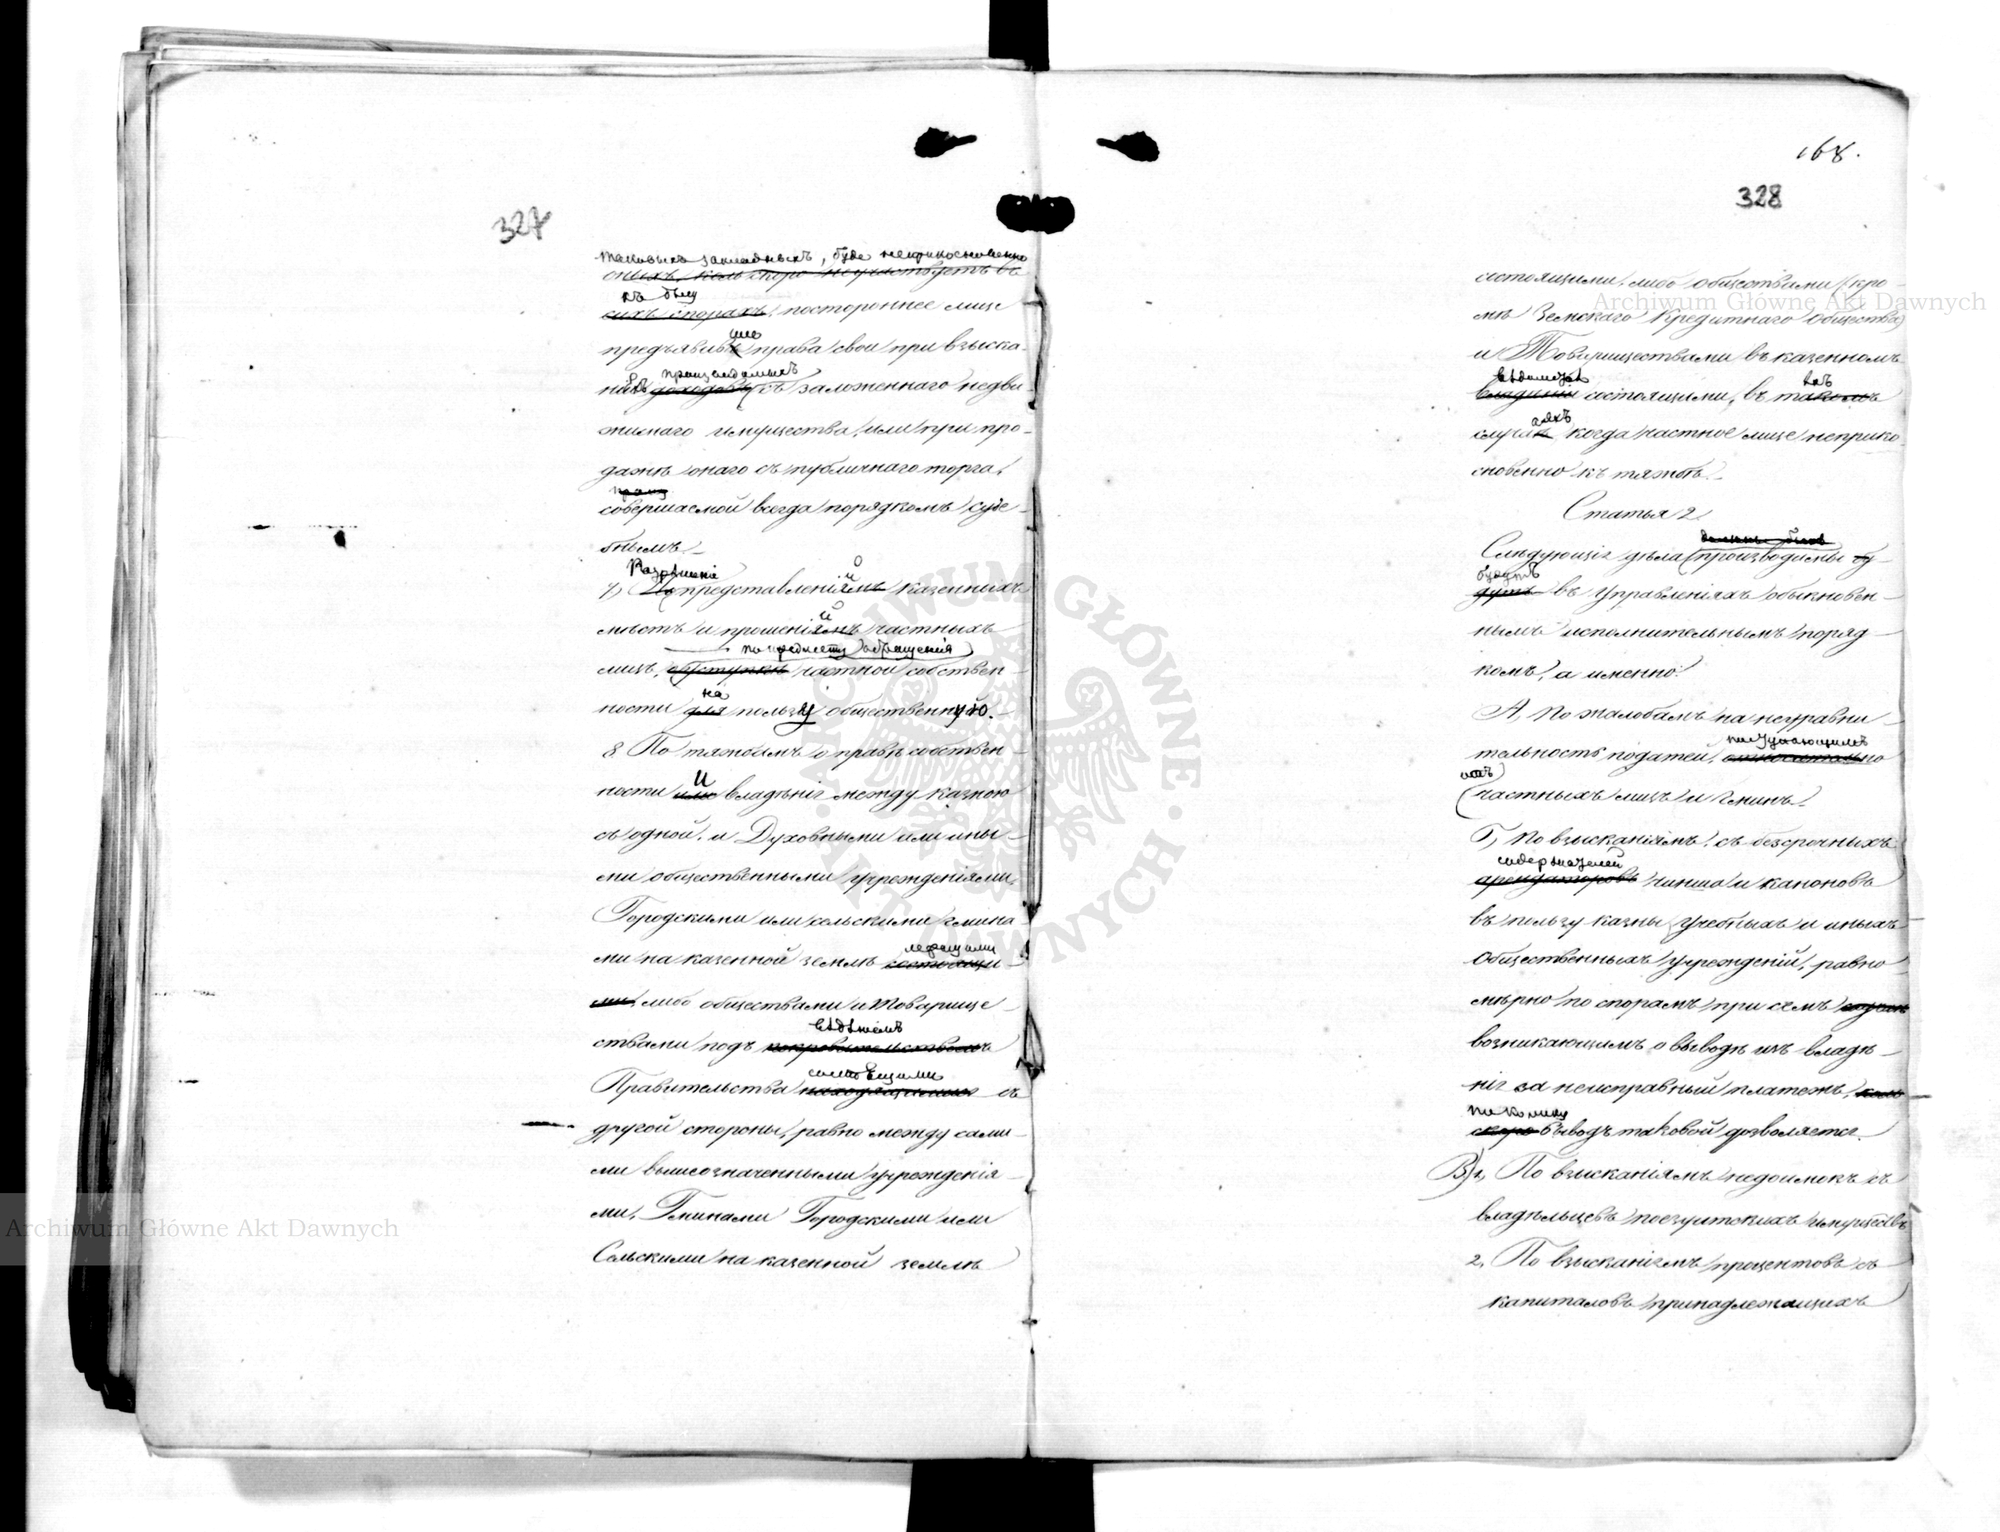 327
таковыхъ закладныхъ, буде неприкосновенно
оныхъ, коль скоро неучаствуетъ въ
къ делу
сихъ спорахъ, постороннее лице
предъявив права свои при взыска-
ніи доходовъ съ заложеннаго недви-
жимаго имущества, или при про-
дажѣ онаго съ публичнаго торга,
совершаемой всегда порядкомъ суде-
бнымъ.
Разрѣшеніе
7) По представленіямъ казенныхъ
мѣстъ и прошеніямъ частныхъ
по предмету обращенія
лицъ, объ уступкѣ частной собствен-
на
ности для пользу общественную.
8. По тяжбамъ о правѣ собствен-
и
ности или владѣніи между казною
съ одной, и Духовными или ины-
ми общественными учрежденіями,
Городскими или сельскими гмина-
лежащими
ми на казенной землѣ состоящи-
ми, либо обществами и товарище-
вѣдѣніемъ
ствами подъ покровительствомъ
состоящими
Правительства находящимися съ
другой стороны, равно между сами-
ми вышеозначенными учрежденія-
ми, Гминами Городскими или
Сельскими на казенной землѣ
168.
328
состоящими, либо обществами (кро-
мѣ Земскаго Кредитнаго Общества)
и Товариществами въ казенномъ
вѣдомствѣ
владѣніи состоящими, въ такомъ
аяхъ
случаѣ когда частное лице неприко-
сновенно къ тяжбѣ.
Статья 2.
должны быть
Слѣдующія дѣла производимы бу-
будутъ
дутъ въ Управленіяхъ обыкновен-
нымъ исполнительнымъ поряд-
комъ, а именно:
А, По жалобамъ на неуравни-
поступающимъ
тельность податей, относительно
отъ
частныхъ лицъ и гминъ.
Б, По взысканіямъ съ безсрочныхъ
содержателей
арендаторовъ чинша и каноновъ
въ пользу казны учебныхъ и иныхъ
Общественныхъ учрежденій, равно-
мѣрно по спорамъ при семъ случаѣ
возникающимъ о выводѣ изъ владѣ-
нія за неисправный платежъ, коль
поколику
скоро выводъ таковой дозволяется.
В) 1, По взысканіямъ недоимокъ съ
владѣльцевъ поезуитскихъ имуществъ
2, По взысканіямъ процентовъ съ
капиталовъ принадлежащихъ
Archiwum Główne Akt Dawnych
Archiwum Główne Akt Dawnych
ARCHIWUM GŁÓWNE AKT DAWNYCH